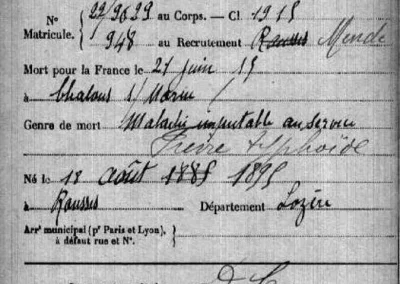 Nº 22/9629 au Corps. — Cl. 1915
Matricule. 948 au Recrutement Rousses Mende
Mort pour la France le 21 juin 15
à Chalons s/ Marne
Genre de mort Maladie imputable au service
Fièvre typhoïde
Né le 18 août 1885 1895
à Rousses Département Lozère
Arrᵗ municipal (pʳ Paris et Lyon),
à défaut rue et Nº.